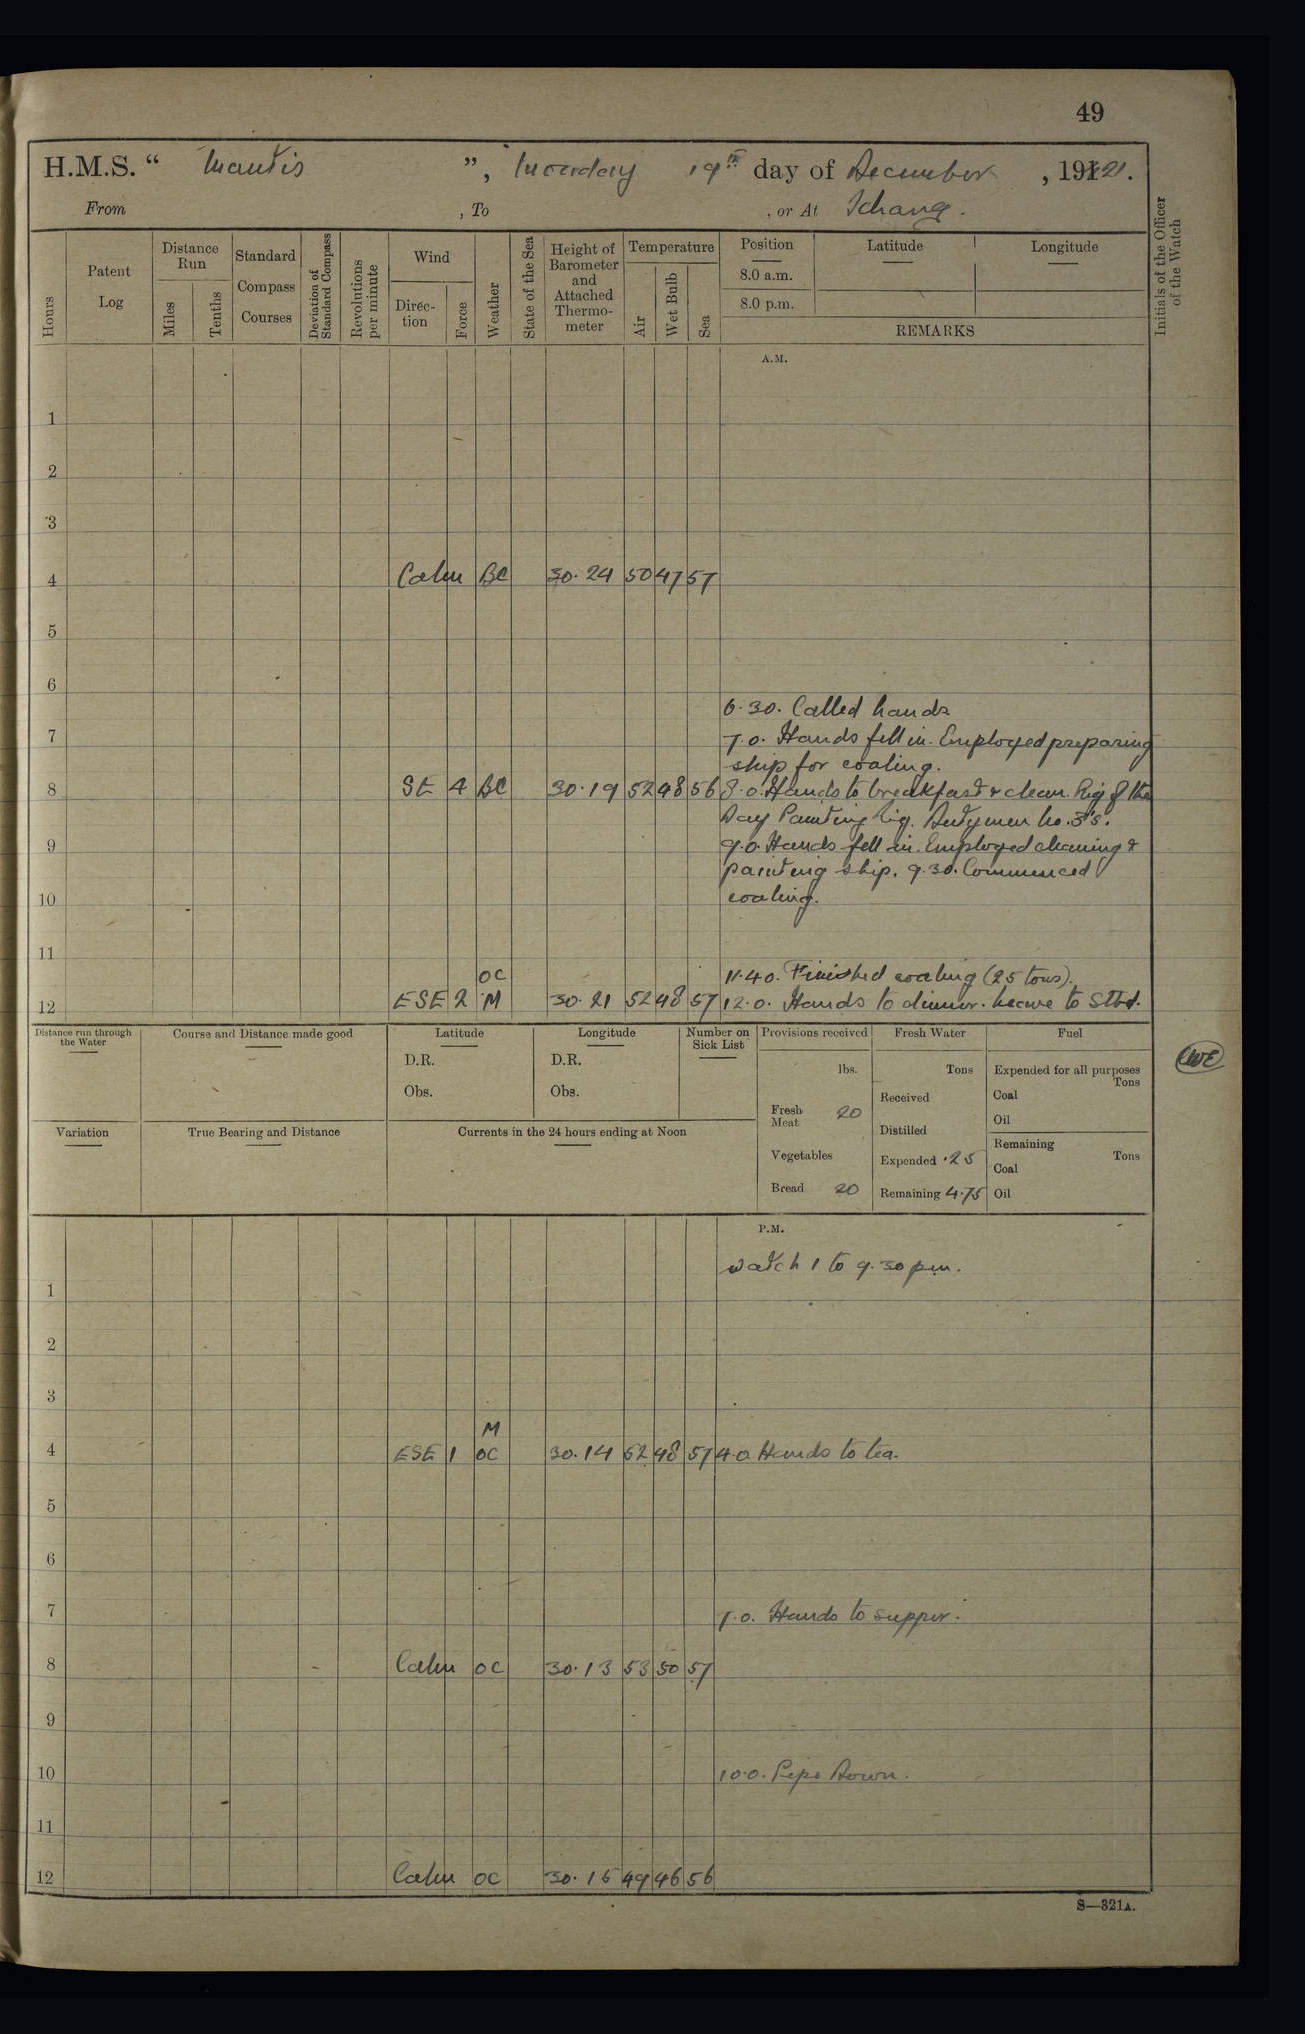 49
H.M.S. “ Mantis ”, Monday 19th day of December , 191 21.
From , To , or At Ichang.
Hours
Patent Log
Distance Run
Miles
Tenths
Standard Compass Courses
Deviation of Standard Compass
Revolutions per minute
Wind
Direction
Force
Weather
State of the Sea
Height of Barometer and Attached Thermometer
Temperature
Air
Wet Bulb
Sea
Position
8.0 a.m.
8.0 p.m.
Latitude
Longitude
REMARKS
Initials of the Officer of the Watch
A.M.
1
2
3
4 Calm BC 30.24 50 47 57
5
6
6.30. Called hands
7
7.0. Hands fell in. Employed preparing
ship for coaling.
8 SE 4 BC 30.19 52 48 56 8.0. Hands to breakfast & clean. Rig of the
Day Painting Rig. Dutymen No. 3's.
9
9.0. Hands fell in. Employed cleaning &
painting ship. 9.30. Commenced
10
coaling.
11
OC 11.40. Finished coaling (25 tons).
12 ESE 2 M 30.21 52 48 57 12.0. Hands to dinner. Leave to Stbd.
Distance run through the Water
Course and Distance made good
Latitude
D.R.
Obs.
Longitude
D.R.
Obs.
Number on Sick List
Provisions received
lbs.
Fresh Meat 20
Vegetables
Bread 20
Fresh Water
Tons
Received
Distilled
Expended .25
Remaining 4.75
Fuel
Expended for all purposes
Tons
Coal
Oil
Remaining
Tons
Coal
Oil
Variation
True Bearing and Distance
Currents in the 24 hours ending at Noon
P.M.
watch 1 to 9.30 pm.
1
2
3
M
4 ESE 1 OC 30.14 52 48 57 4.0. Hands to tea.
5
6
7 7.0. Hands to supper.
8 Calm OC 30.13 53 50 57
9
10 10.0. Pipe Down.
11
12 Calm OC 30.15 49 46 56
S—321A.